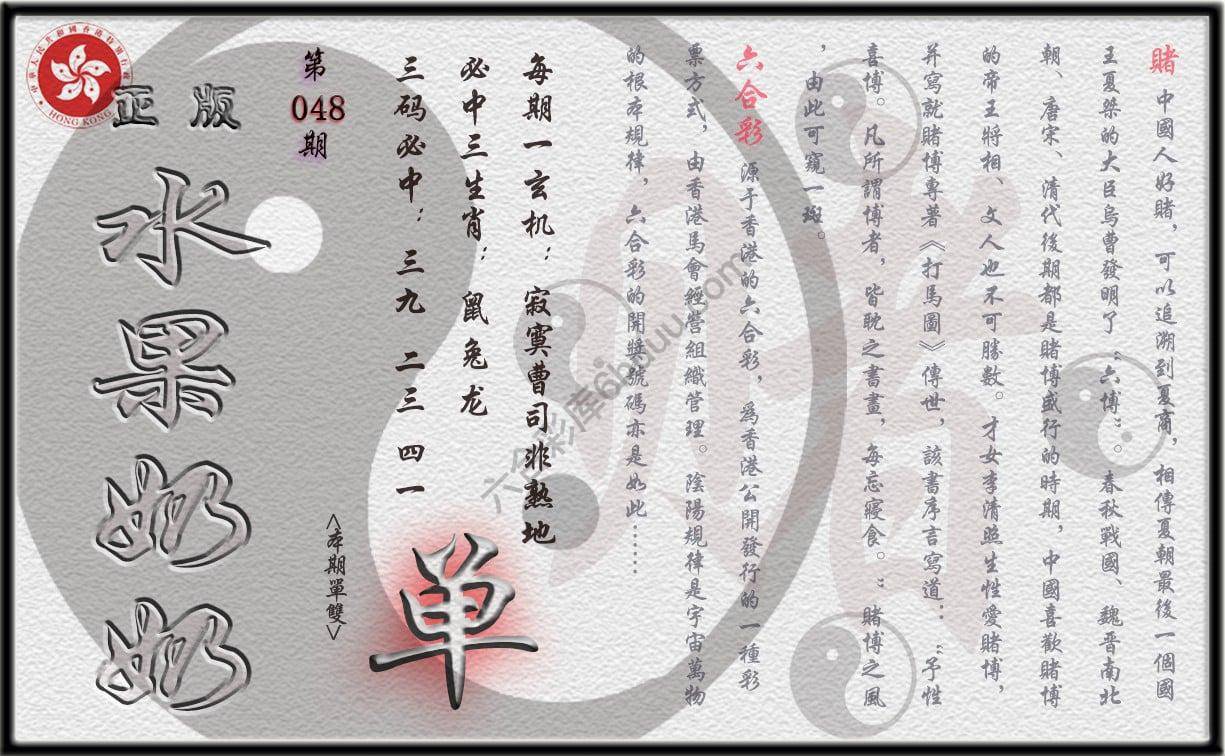 賭 中國人好賭，可以追溯到夏商，相傳夏朝最後一個國
王夏桀的大臣烏曹發明了“六博”。春秋戰國、魏晋南北
朝、唐宋、清代後期都是賭博盛行的時期，中國喜歡賭博
的帝王將相、文人也不可勝數。才女李清照生性愛賭博，
并寫就賭博專著《打馬圖》傳世，該書序言寫道：“予性
喜博。凡所謂博者，皆耽之書畫，每忘寢食。”賭博之風
，由此可窺一斑。
六合彩 源于香港的六合彩，爲香港公開發行的一種彩
票方式，由香港馬會經營組織管理。陰陽規律是宇宙萬物
的根本規律，六合彩的開獎號碼亦是如此……
每期一玄机：寂寞曹司非熟地
必中三生肖：鼠兔龙
三码必中：三九 二三 四一
单
<本期單雙>
第
048
期
正版
水果奶奶
中華人民共和國香港特別行政區
HONG KONG
六合彩库6huuu.com